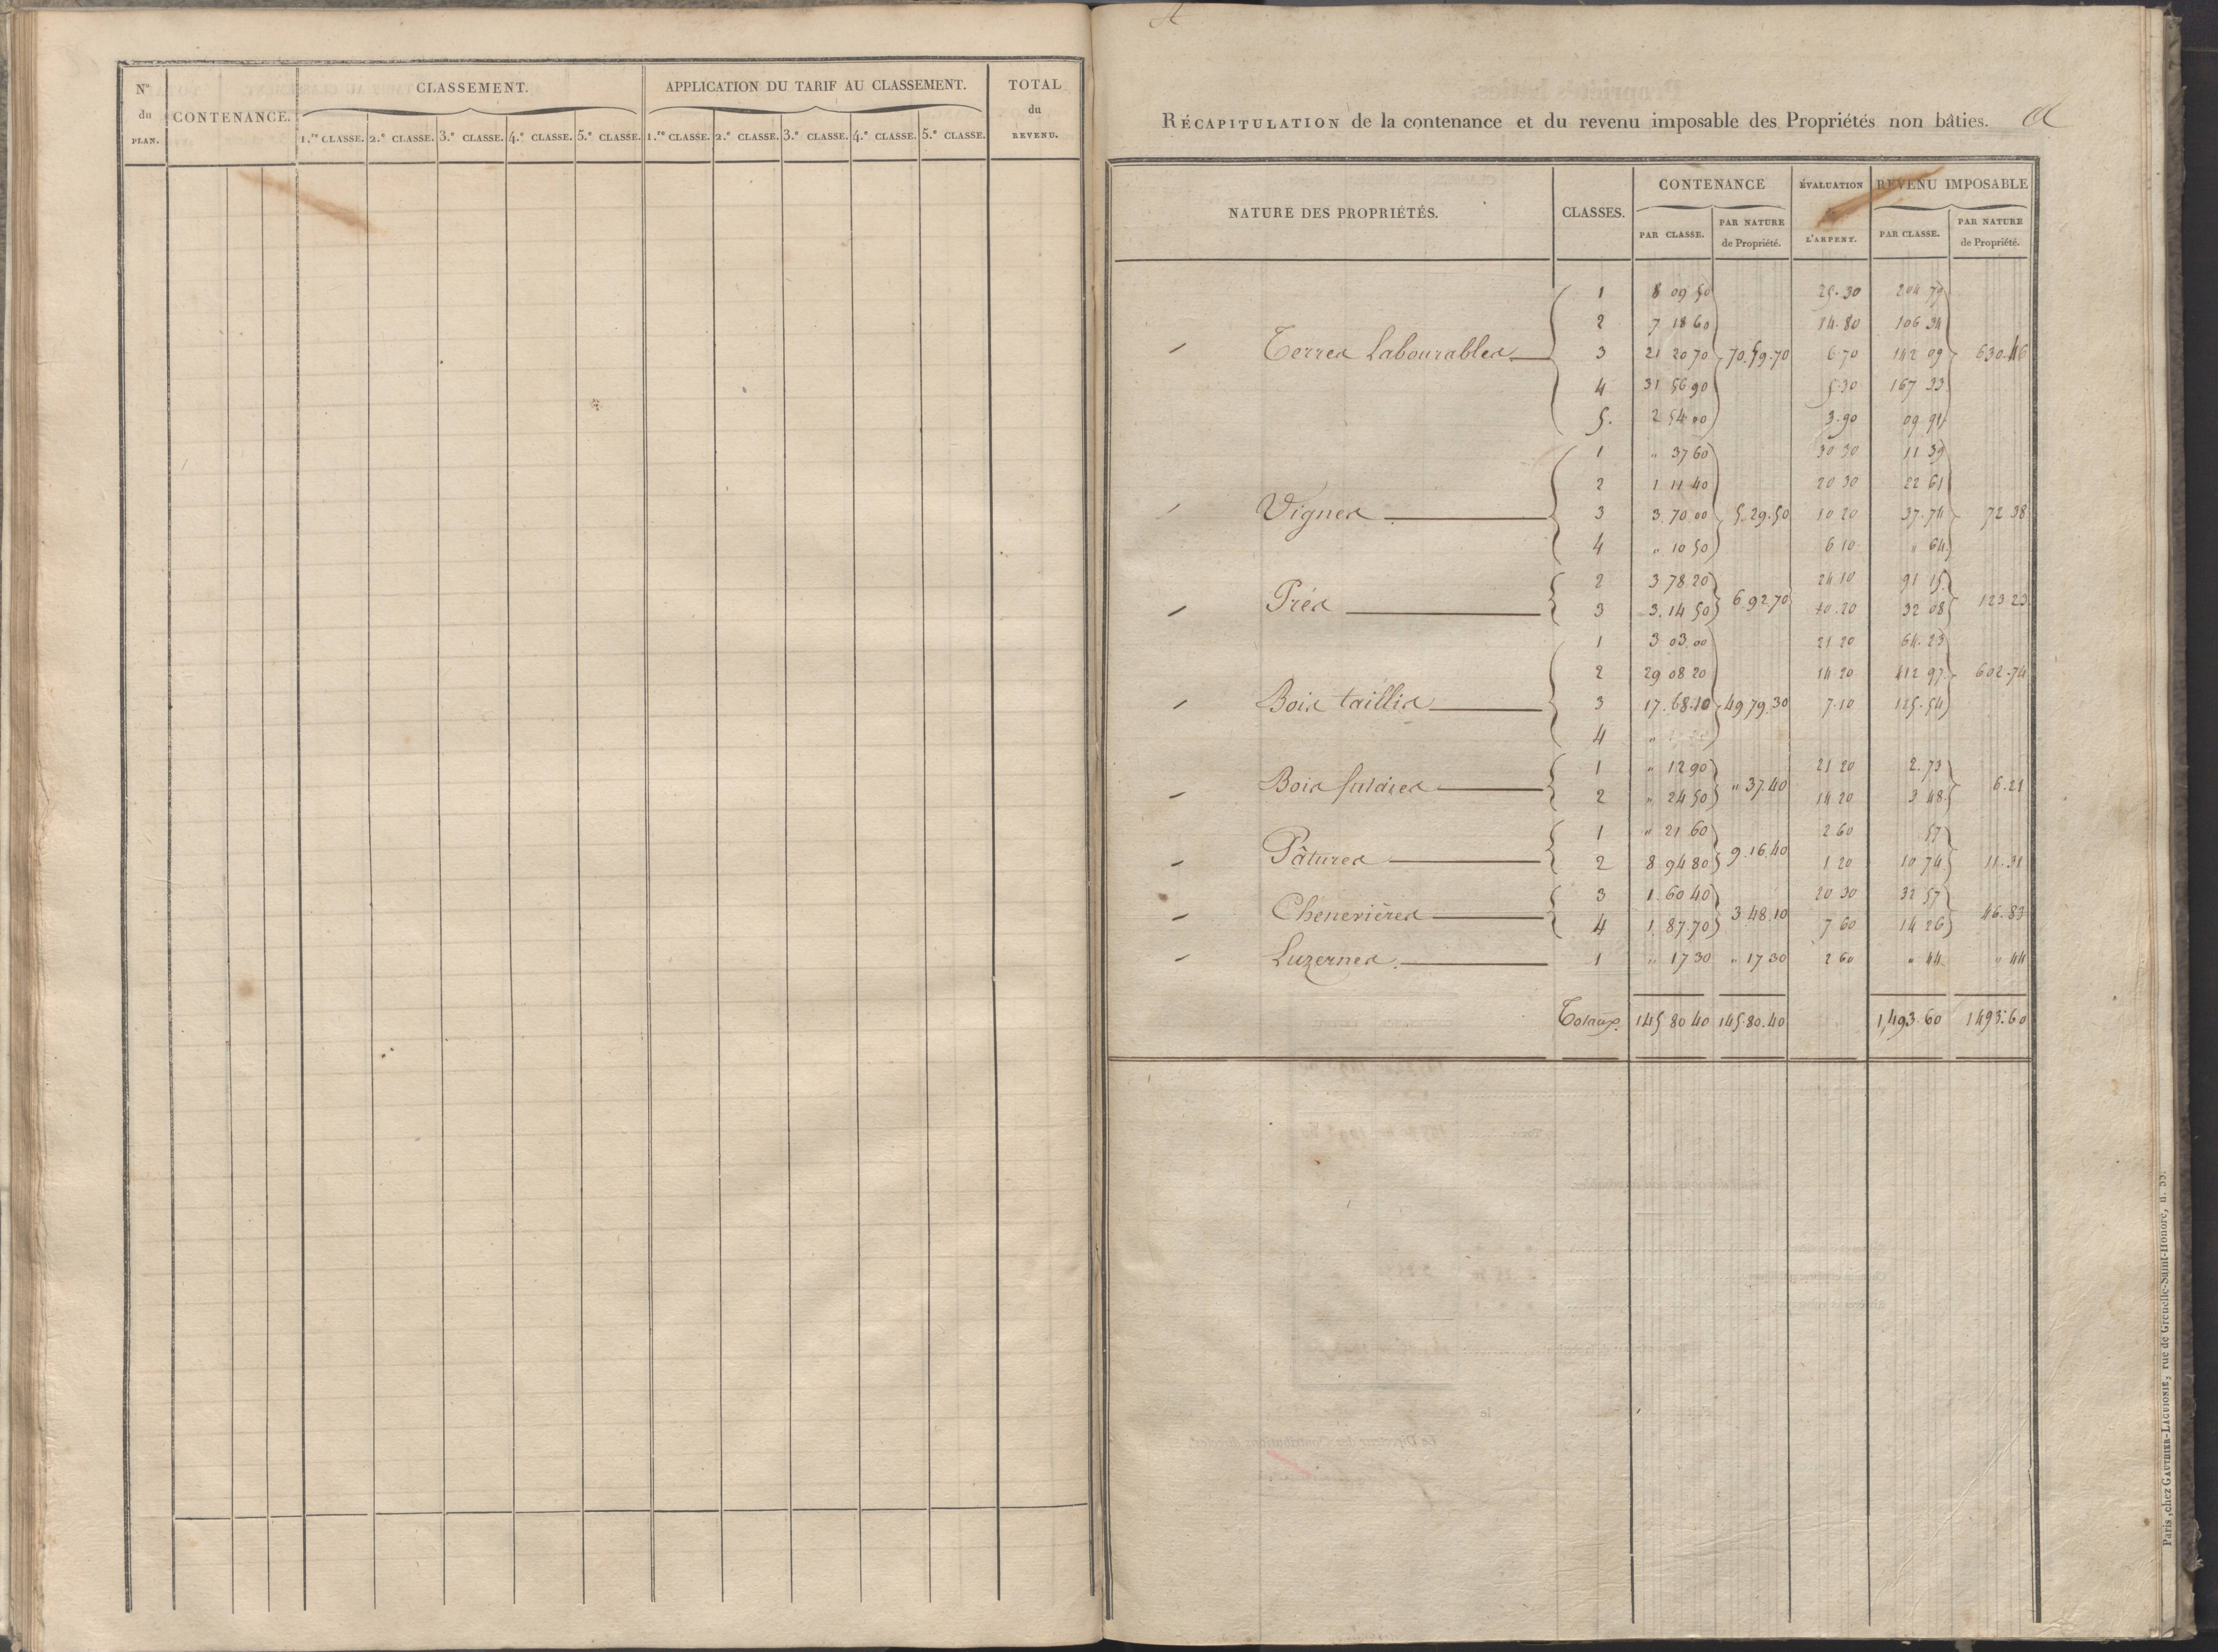 N.º du PLAN.
CONTENANCE.
CLASSEMENT.
1.re CLASSE. 2.e CLASSE. 3.e CLASSE. 4.e CLASSE. 5.e CLASSE.
APPLICATION DU TARIF AU CLASSEMENT.
1.re CLASSE. 2.e CLASSE. 3.e CLASSE. 4.e CLASSE. 5.e CLASSE.
TOTAL du REVENU.
RÉCAPITULATION de la contenance et du revenu imposable des Propriétés non bâties. A
NATURE DES PROPRIÉTÉS.
CLASSES.
CONTENANCE
PAR CLASSE. PAR NATURE de Propriété.
ÉVALUATION L'ARPENT.
REVENU IMPOSABLE
PAR CLASSE. PAR NATURE de Propriété.
1 8 09 50 25.30 204 79
2 7 18 60 14.80 106 34
Terres Labourables 3 21 20 70 70.59.70 6.70 142 09 630.46
4 31 56 90 5.30 167 33
5. 2 54 00 3.90 09 91
1 " 37 60 30 30 11 39
2 1 11 40 20 30 22 61
Vignes 3 3.70 00 5.29.50 10 20 37.74 72 38
4 " 10 50 6 10 " 64
2 3 78 20 24 10 91 15
Prés 3 3.14 50 6.92.70 10.20 32 08 123 23
1 3 03 00 21 20 64.23
2 29 08 20 14 20 412 97 602.74
Bois taillis 3 17.68.10 49.79.30 7.10 125.54
4 "
1 " 12 90 21 20 2.73
Bois futaies 2 " 24 50 " 37.40 14 20 3 48 6.21
1 " 21 60 2 60 57
Pâtures 2 8 94 80 9.16.40 1 20 10 74 11.31
3 1.60 40 20 30 32 57
Chenevières 4 1.87.70 3 48.10 7 60 14 26 46.83
Luzernes. 1 " 17 30 " 17 30 2 60 " 44 " 44
Totaux. 145 80 40 145.80.40 1,493.60 1493.60
Paris, chez GAUTHIER-LAGUIONIE, rue de Grenelle-Saint-Honoré, n. 55.